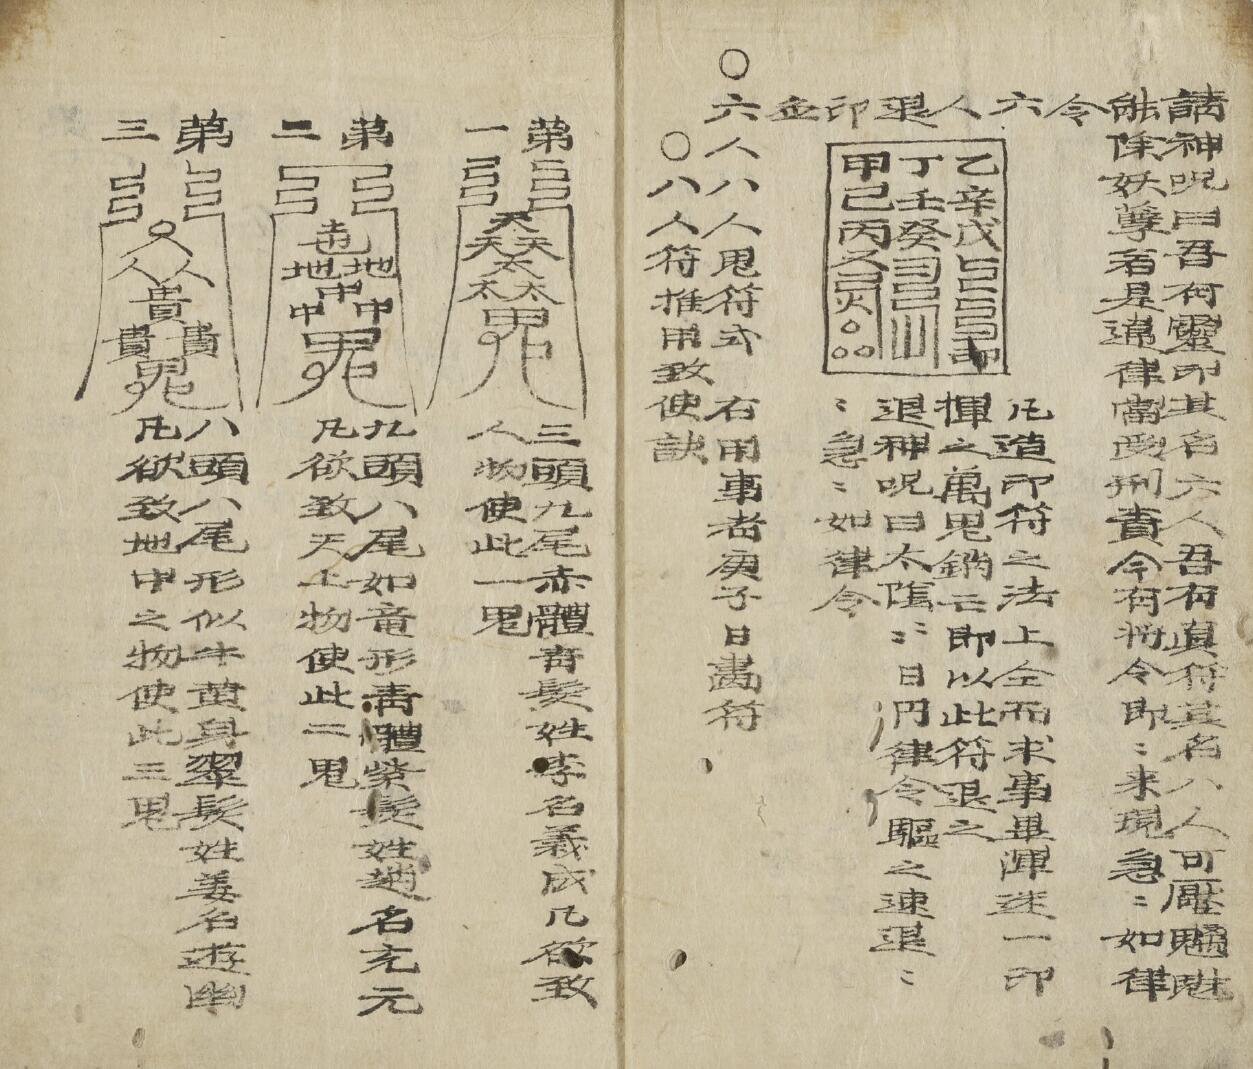 諸神呪曰吾有靈印其名六人吾有眞符其名八人可壓魑魅
能除妖孽若是違律當受刑責今有將令即〻来現急〻如律
令
六人退印
凡造印符之法上仝而求事畢渾迷一印
揮之萬鬼鎖亡即以此符退之
退神呪曰太陰〻日門律令驅之速退〻
〻急〻如律令
乙辛戊
丁壬癸
甲己丙
○六人八人鬼符式 右用事者庚子日畵符
○八人符推用致使訣
苐一
天天天太太太鬼
三頭九尾赤體靑髮姓李名義成凡欲致
人物使此一鬼
苐二
地地中中中鬼
九頭八尾如竜形靑體紫髮姓趙名充元
凡欲致天上物使此二鬼
苐三
人人人貴貴貴鬼
八頭八尾形似牛黃身翠髮姓姜名遊幽
凡欲致地中之物使此三鬼